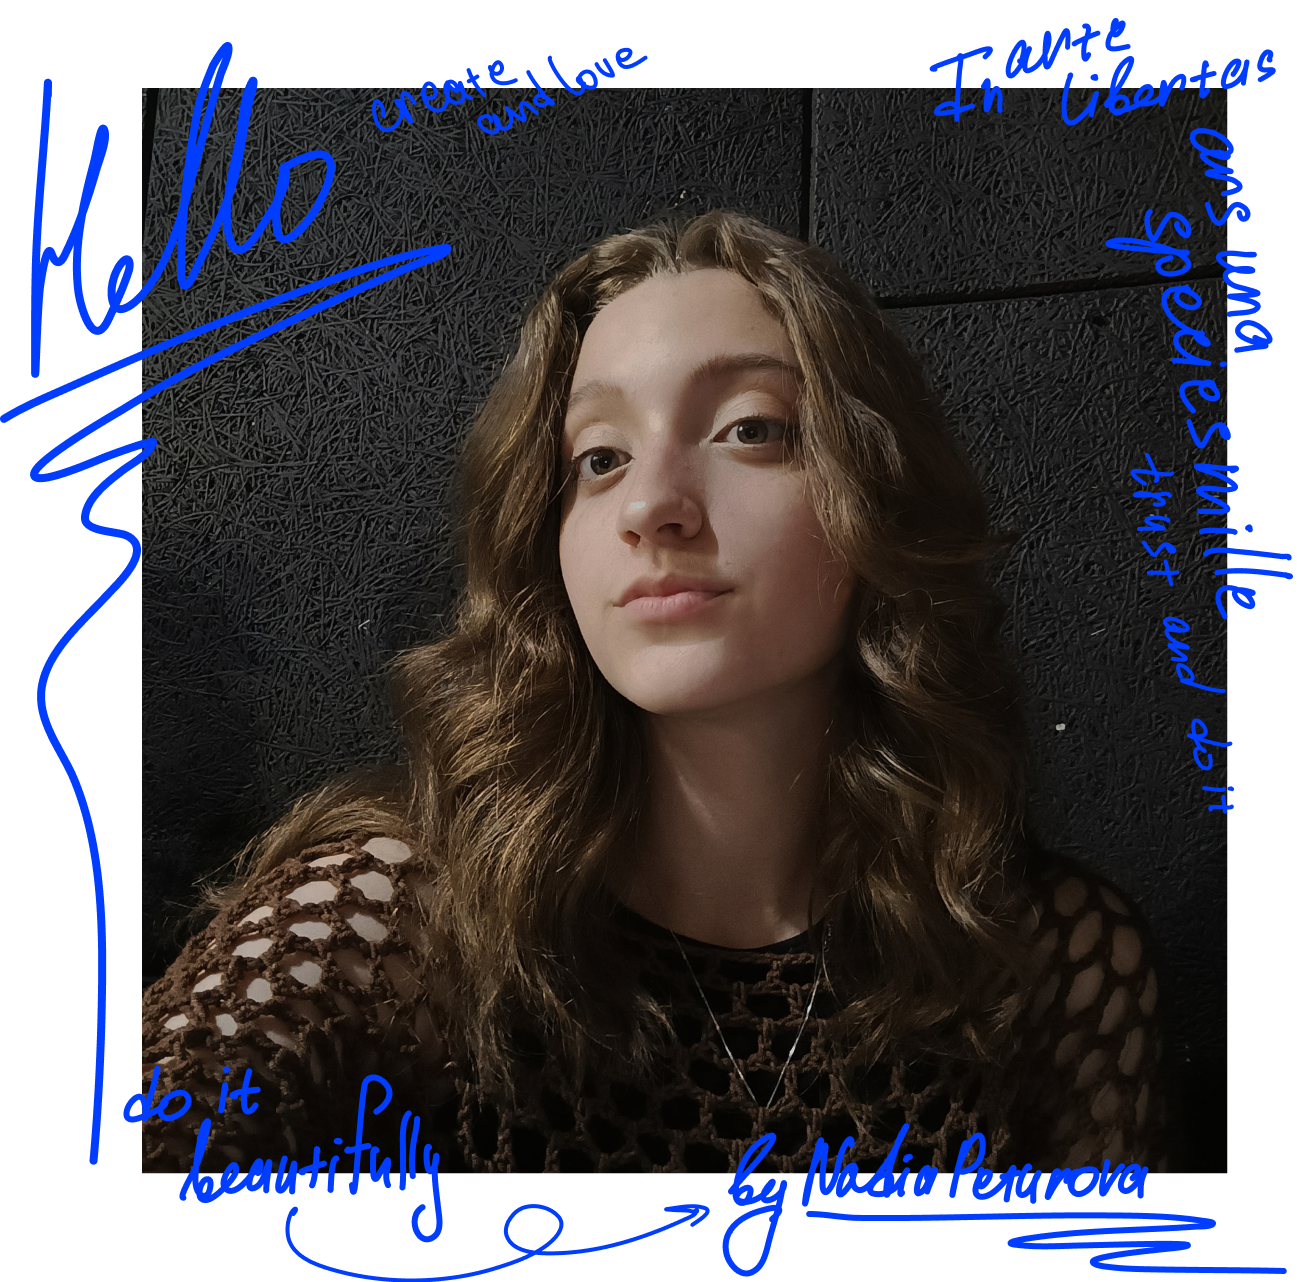 Hello
create
and love
In arte
libertas
ars una
species mille
trust and do it
do it
beautifully
by Nadia Peturova